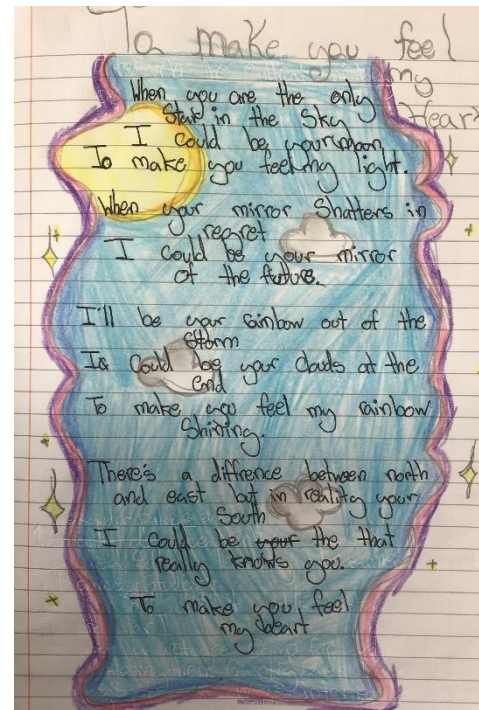 To make you feel
my
Heart
When you are the only
Star in the Sky
I could be your moon,
To make you feel my light.
When your mirror Shatters in
regret
I could be your mirror
of the future.
I'll be your rainbow out of the
Storm
I could be your clouds at the
end
To make you feel my rainbow
Shining.
There's a diffrence between north
and east but in reality your
South
I could be your the that
really knows you.
To make you feel
my heart